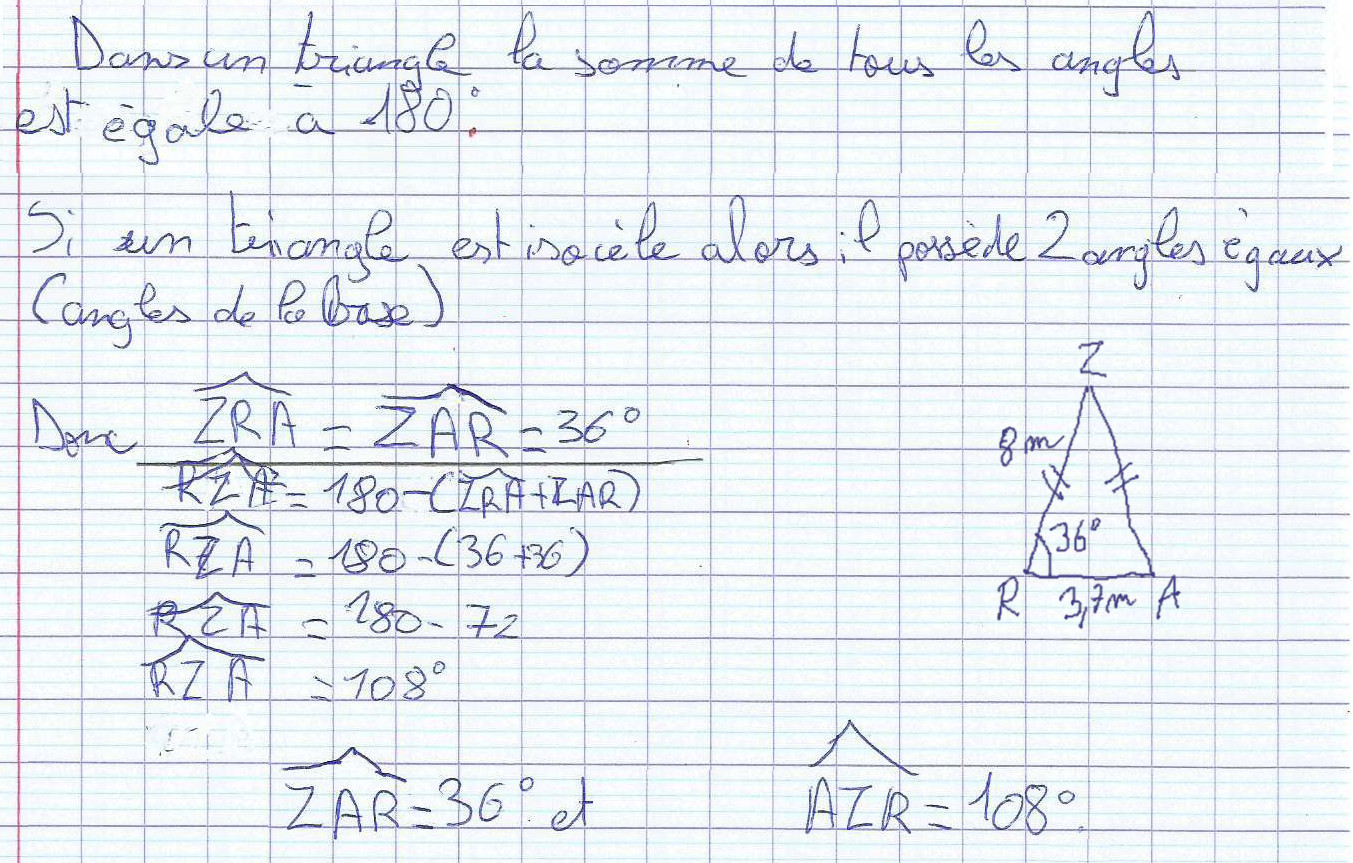 Dans un triangle la somme de tous les angles
est égale à 180°.
Si un triangle est isocèle alors il possède 2 angles égaux
(angles de la base)
Z
Donc ZRA = ZAR = 36°
8m
RZA = 180-(ZRA+ZAR)
RZA = 180-(36+36)
36°
R 3,7m A
RZA = 180-72
RZA = 108°
ZAR = 36° et AZR = 108°.